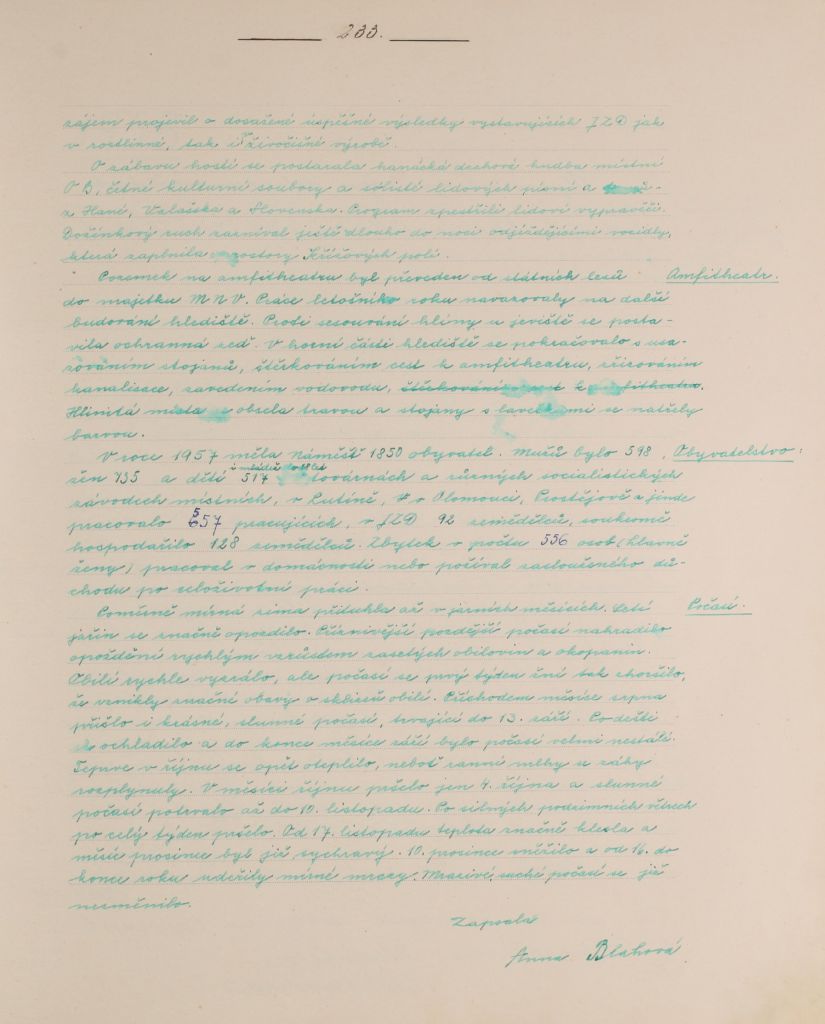 233.
zájem projevil o dosažené úspěšné výsledky vystavujících JZD jak
v rostlinné, tak i živočišné výrobě.
O zábavu hostí se postarala hanácká dechová hudba místní
O B, četné kulturní soubory a sólisté lidových písní a
z Hané, Valašska a Slovenska. Program zpestřili lidoví vypravěči.
Dožínkový ruch zazníval ještě dlouho do noci odjíždějícími vozidly,
která zaplnila prostory Křížových polí.
Pozemek na amfitheatru byl převeden od státních lesů Amfitheatr.
do majetku MNV. Práce letošního roku navazovaly na další
budování hlediště. Proti sesouvání hlíny u jeviště se posta-
vila ochranná zeď. V horní části hlediště se pokračovalo s usa-
zováním stojanů, štěrkováním cest k amfitheatru, zřizováním
kanalisace, zavedením vodovodu, štěrkování cest k amfitheatru.
Hlinitá místa se obsela travou a stojany s lavičkami se natřely
barvou.
V roce 1957 měla Náměšť 1850 obyvatel. Mužů bylo 598, Obyvatelstvo:
žen 735 a dětí a mládeže do 18 let 517. továrnách a různých socialistických
závodech místních, v Lutíně, v Olomouci, Prostějově a jinde
pracovalo 557 pracujících, v JZD 92 zemědělců, soukromě
hospodařilo 128 zemědělců. Zbytek v počtu 556 osob (hlavně
ženy) pracoval v domácnosti nebo požíval zaslouženého dů-
chodu po celoživotní práci.
Poměrně mírná zima přituhla až v jarních měsících. Setí Počasí.
jařin se značně opozdilo. Příznivější pozdější počasí nahradilo
opoždění rychlým vzrůstem zasetých obilovin a okopanin.
Obilí rychle vyzrálo, ale počasí se prvý týden žní tak zhoršilo,
že vznikly značné obavy o sklizeň obilí. Příchodem měsíce srpna
přišlo i krásné, slunné počasí, trvající do 13. září. Po dešti
se ochladilo a do konce měsíce září bylo počasí velmi nestálé.
Teprve v říjnu se opět oteplilo, neboť ranní mlhy se záhy
rozplynuly. V měsíci říjnu pršelo jen 4. října a slunné
počasí potrvalo až do 10. listopadu. Po silných podzimních větrech
po celý týden pršelo. Od 17. listopadu teplota značně klesla a
měsíc prosinec byl již sychravý. 10. prosince sněžilo a od 16. do
konce roku udeřily mírné mrazy. Mrazivé, suché počasí se již
nezměnilo.
Zapsala
Anna Blahová